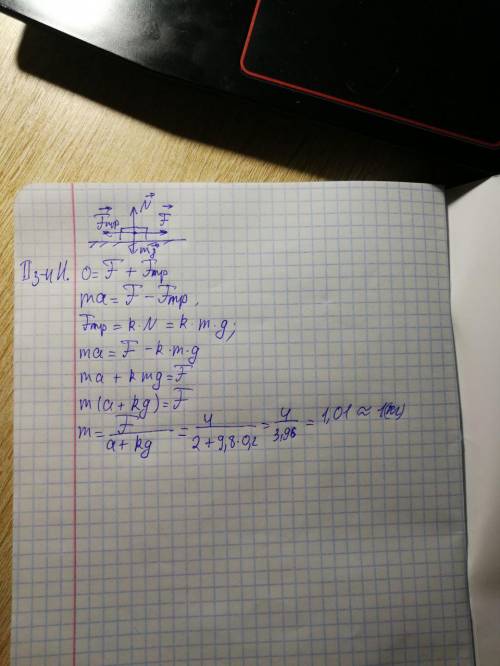 N
Fтр F
mg
II з-н Н. 0 = F + Fтр
ma = F - Fтр,
Fтр = k · N = k · m · g;
ma = F - k · m · g
ma + kmg = F
m(a + kg) = F
m = F / (a + kg) = 4 / (2 + 9,8 · 0,2) = 4 / 3,96 = 1,01 ≈ 1(кг)